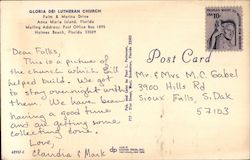 GLORIA DEI LUTHERAN CHURCH
Palm & Marina Drive
Anna Maria Island, Florida
Mailing Address: Post Office Box 1895
Holmes Beach, Florida 33509
Dear Folks,
This is a picture of
the church which Bill
helped build. We got
to stay overnight with
them. We have been
having a good time
and are getting some
collecting done.
Love,
Claudia & Mark
Post Card
10c
Mr. & Mrs M.C. Gabel
3900 Hills Rd
Sioux Falls, S. Dak
57103